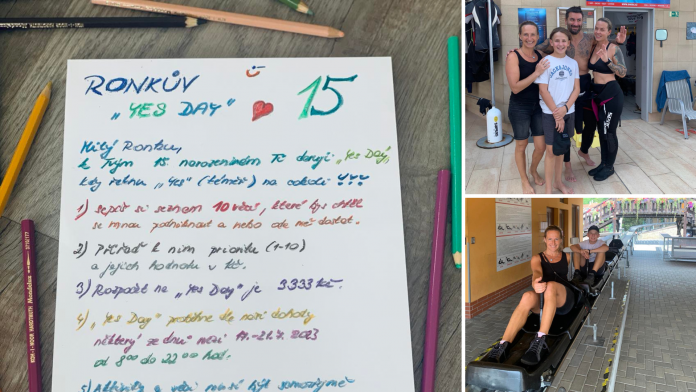 RONKŮV
„YES DAY"
15
Milý Ronku,
k Tvým 15 narozeninám Ti daruji „Yes Day",
kdy řeknu „Yes" (téměř) na cokoli
1) Sepiš si seznam 10 věcí, které bys chtěl
se mnou podniknout a nebo ode mě dostat.
2) Přiřaď k nim prioritu (1-10)
a jejich hodnotu v Kč.
3) Rozpočet na „Yes Day" je 3333 Kč.
4) „Yes Day" proběhne dle naší dohody
některý ze dnů mezi 17.-21.7. 2023
od 8⁰⁰ do 22⁰⁰ hod.
5) Aktivity a věci musí být samozřejmě